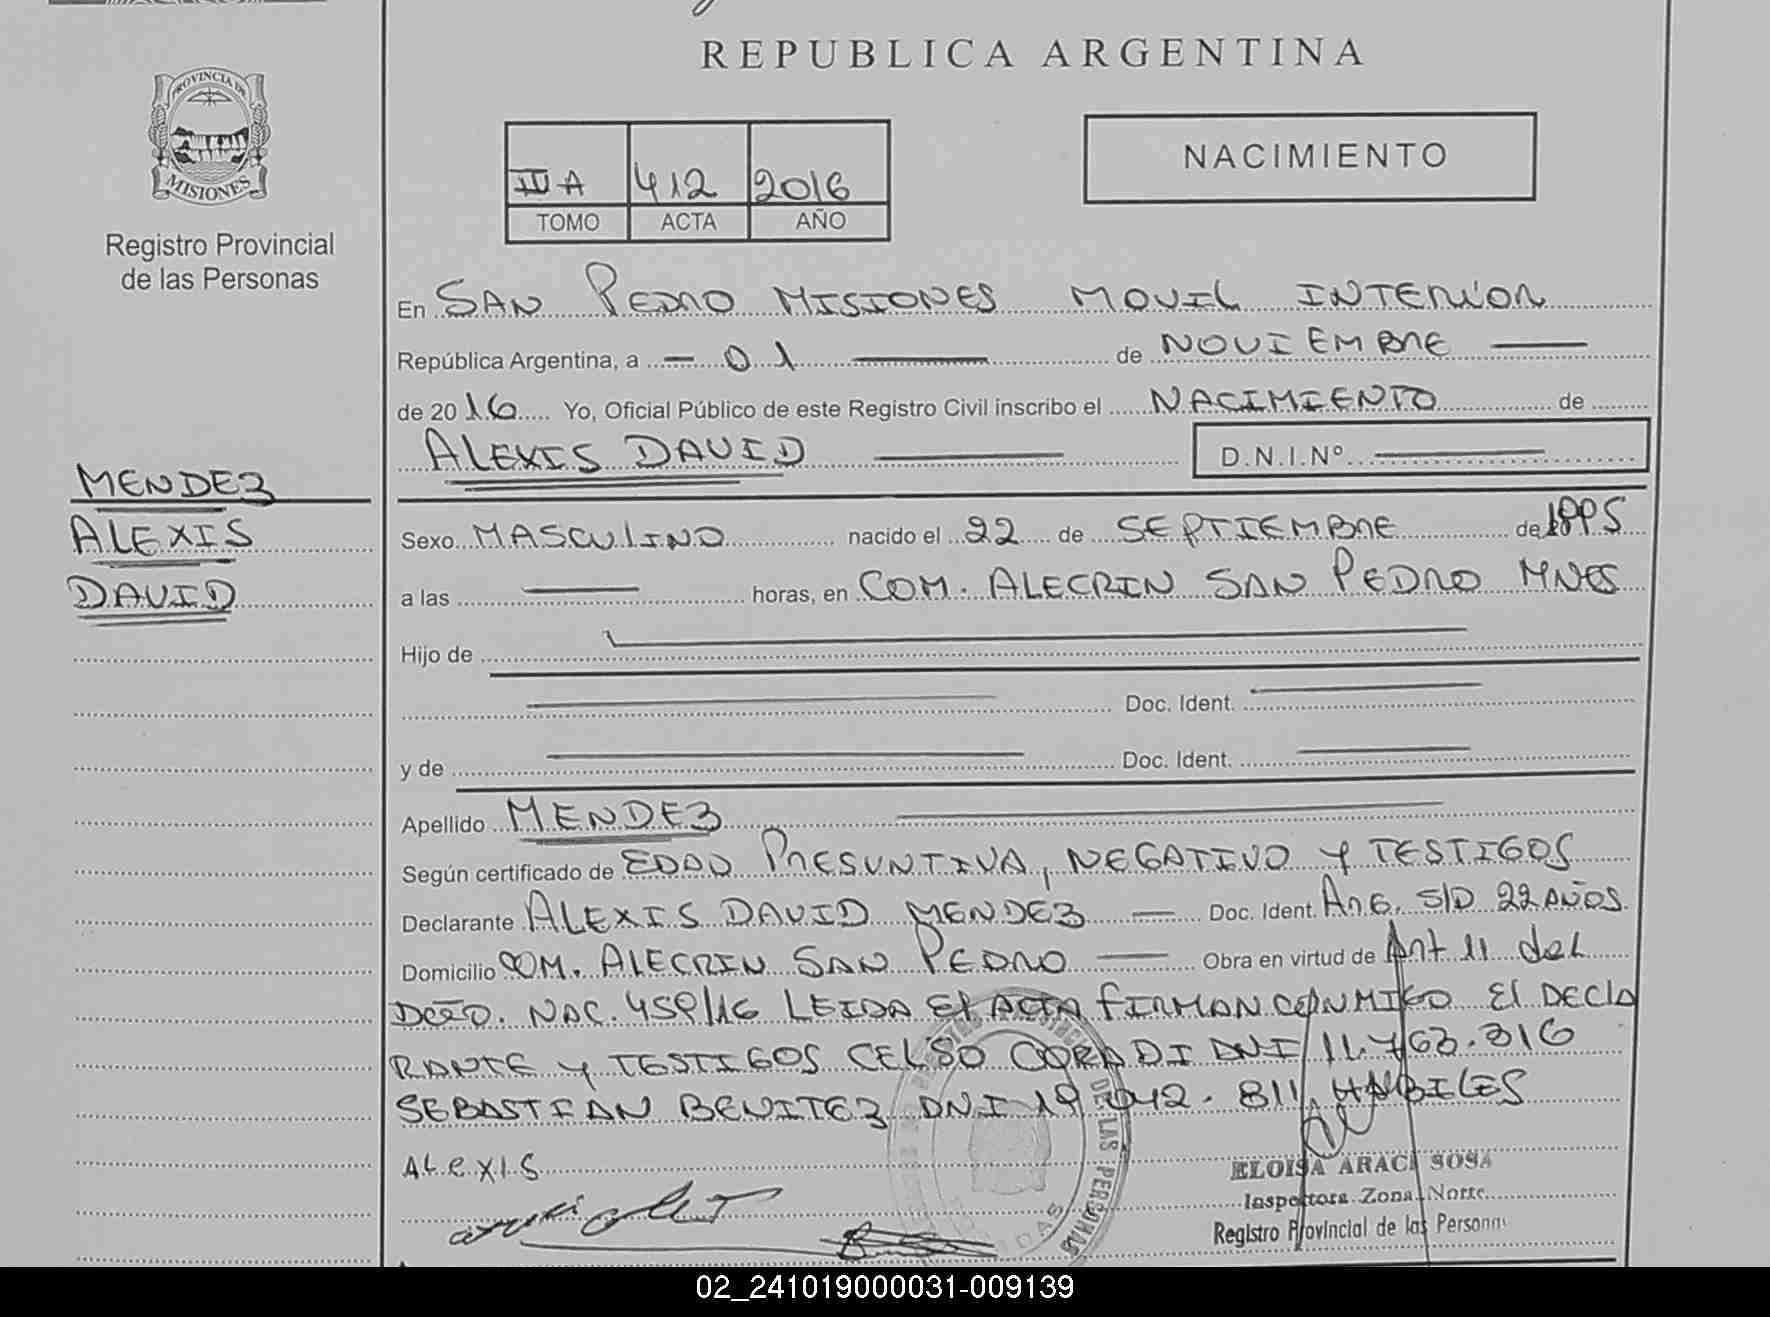 REPUBLICA ARGENTINA
PROVINCIA DE
MISIONES
Registro Provincial
de las Personas
NACIMIENTO
A 412 2016
TOMO ACTA AÑO
En SAN PEDRO MISIONES MOVIL INTERIOR
República Argentina, a — 01 — de NOVIEMBRE —
de 2016 Yo, Oficial Público de este Registro Civil inscribo el NACIMIENTO de
ALEXIS DAVID — D.N.I.Nº —
MENDEZ
ALEXIS
DAVID
Sexo MASCULINO nacido el 22 de SEPTIEMBRE de 1995
a las — horas, en COM. ALECRIN SAN PEDRO MNES
Hijo de —
— Doc. Ident. —
y de — Doc. Ident. —
Apellido MENDEZ —
Según certificado de EDAD PRESUNTIVA, NEGATIVO Y TESTIGOS
Declarante ALEXIS DAVID MENDEZ — Doc. Ident. ARG. S/D 22 AÑOS
Domicilio COM. ALECRIN SAN PEDRO — Obra en virtud de Art 11 del
DCTO. NAC. 459/16 LEIDA El ACTA FIRMAN CONMIGO El DECLA
RANTE Y TESTIGOS CELSO CORADI DNI 11.763.316
SEBASTIAN BENITEZ DNI 19.042.811, HABILES
ALeXIS
ELOISA ARACI SOSA
Inspectora Zona Norte
Registro Provincial de las Personas
DE LAS PERSONAS
02_241019000031-009139